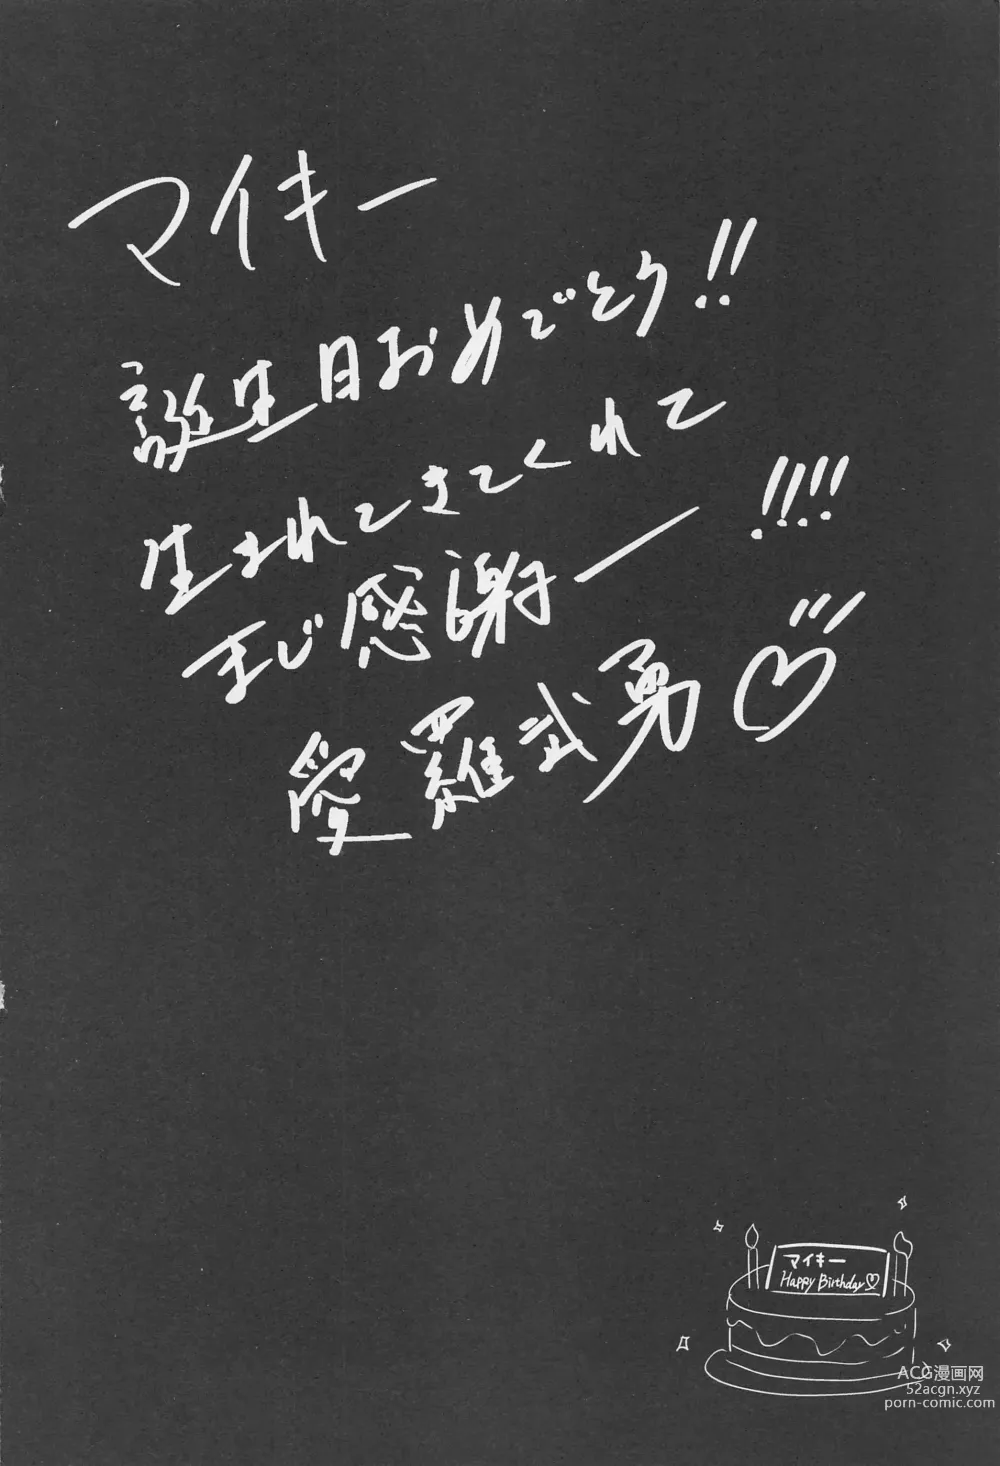 マイキー
誕生日おめでとう!!
生まれてきてくれて
まじ感謝ー!!!!
愛羅武勇♡
マイキー
Happy Birthday♡
ACG漫画网
52acgn.xyz
porn-comic.com